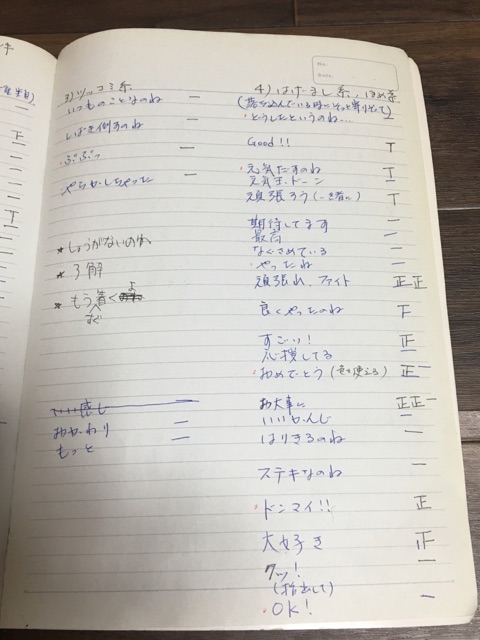 3) ツッコミ系
いつものことなのね 一
しばき倒すのね 一
・ぷぷっ 一
やらかしちゃった 一
* しょうがないのね
* 了解
* もう着くよ
すぐ
いい感じ 一
おかわり 二
もっと 二
4) はげまし系、ほめ系
・どうしたというのね… 一
Good!! T
・元気だすのね T
元気玉ドーン 一
頑張ろう(一緒に) T
期待してます 一
最高 一
なぐさめている 二
・やったね 一
頑張れ、ファイト 正正
良くやったのね 下
すごい! 一
応援してる 正
・おめでとう (色々使える) 正一
お大事に 正正一
いいかんじ 一
はりきるのね 一
ステキなのね 一
・ドンマイ!! 正
大好き 正
クッ! 一
・OK! 一